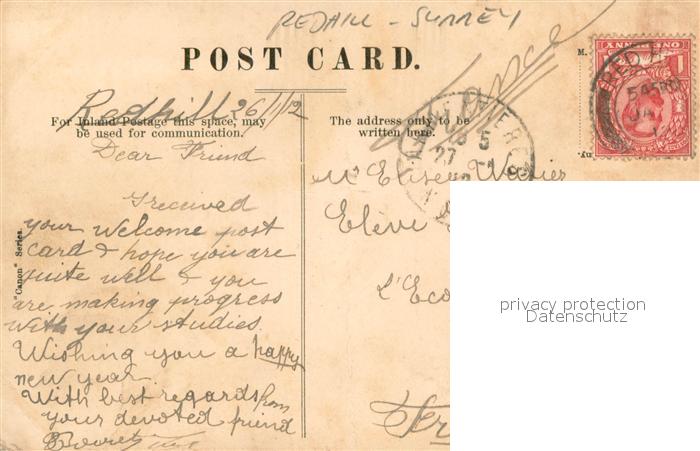 REDHILL - SURREY
POST CARD.
Redhill 26/1/12
For Inland Postage this space, may
be used for communication.
The address only to be
written here.
Dear Friend
I received
your welcome post
card & hope you are
quite well & you
are making progress
with your studies.
Wishing you a happy
new year.
With best regards from
your devoted friend
"Canon" Series.
Mr Eliseu
Elève
L'Eco
privacy protection
Datenschutz